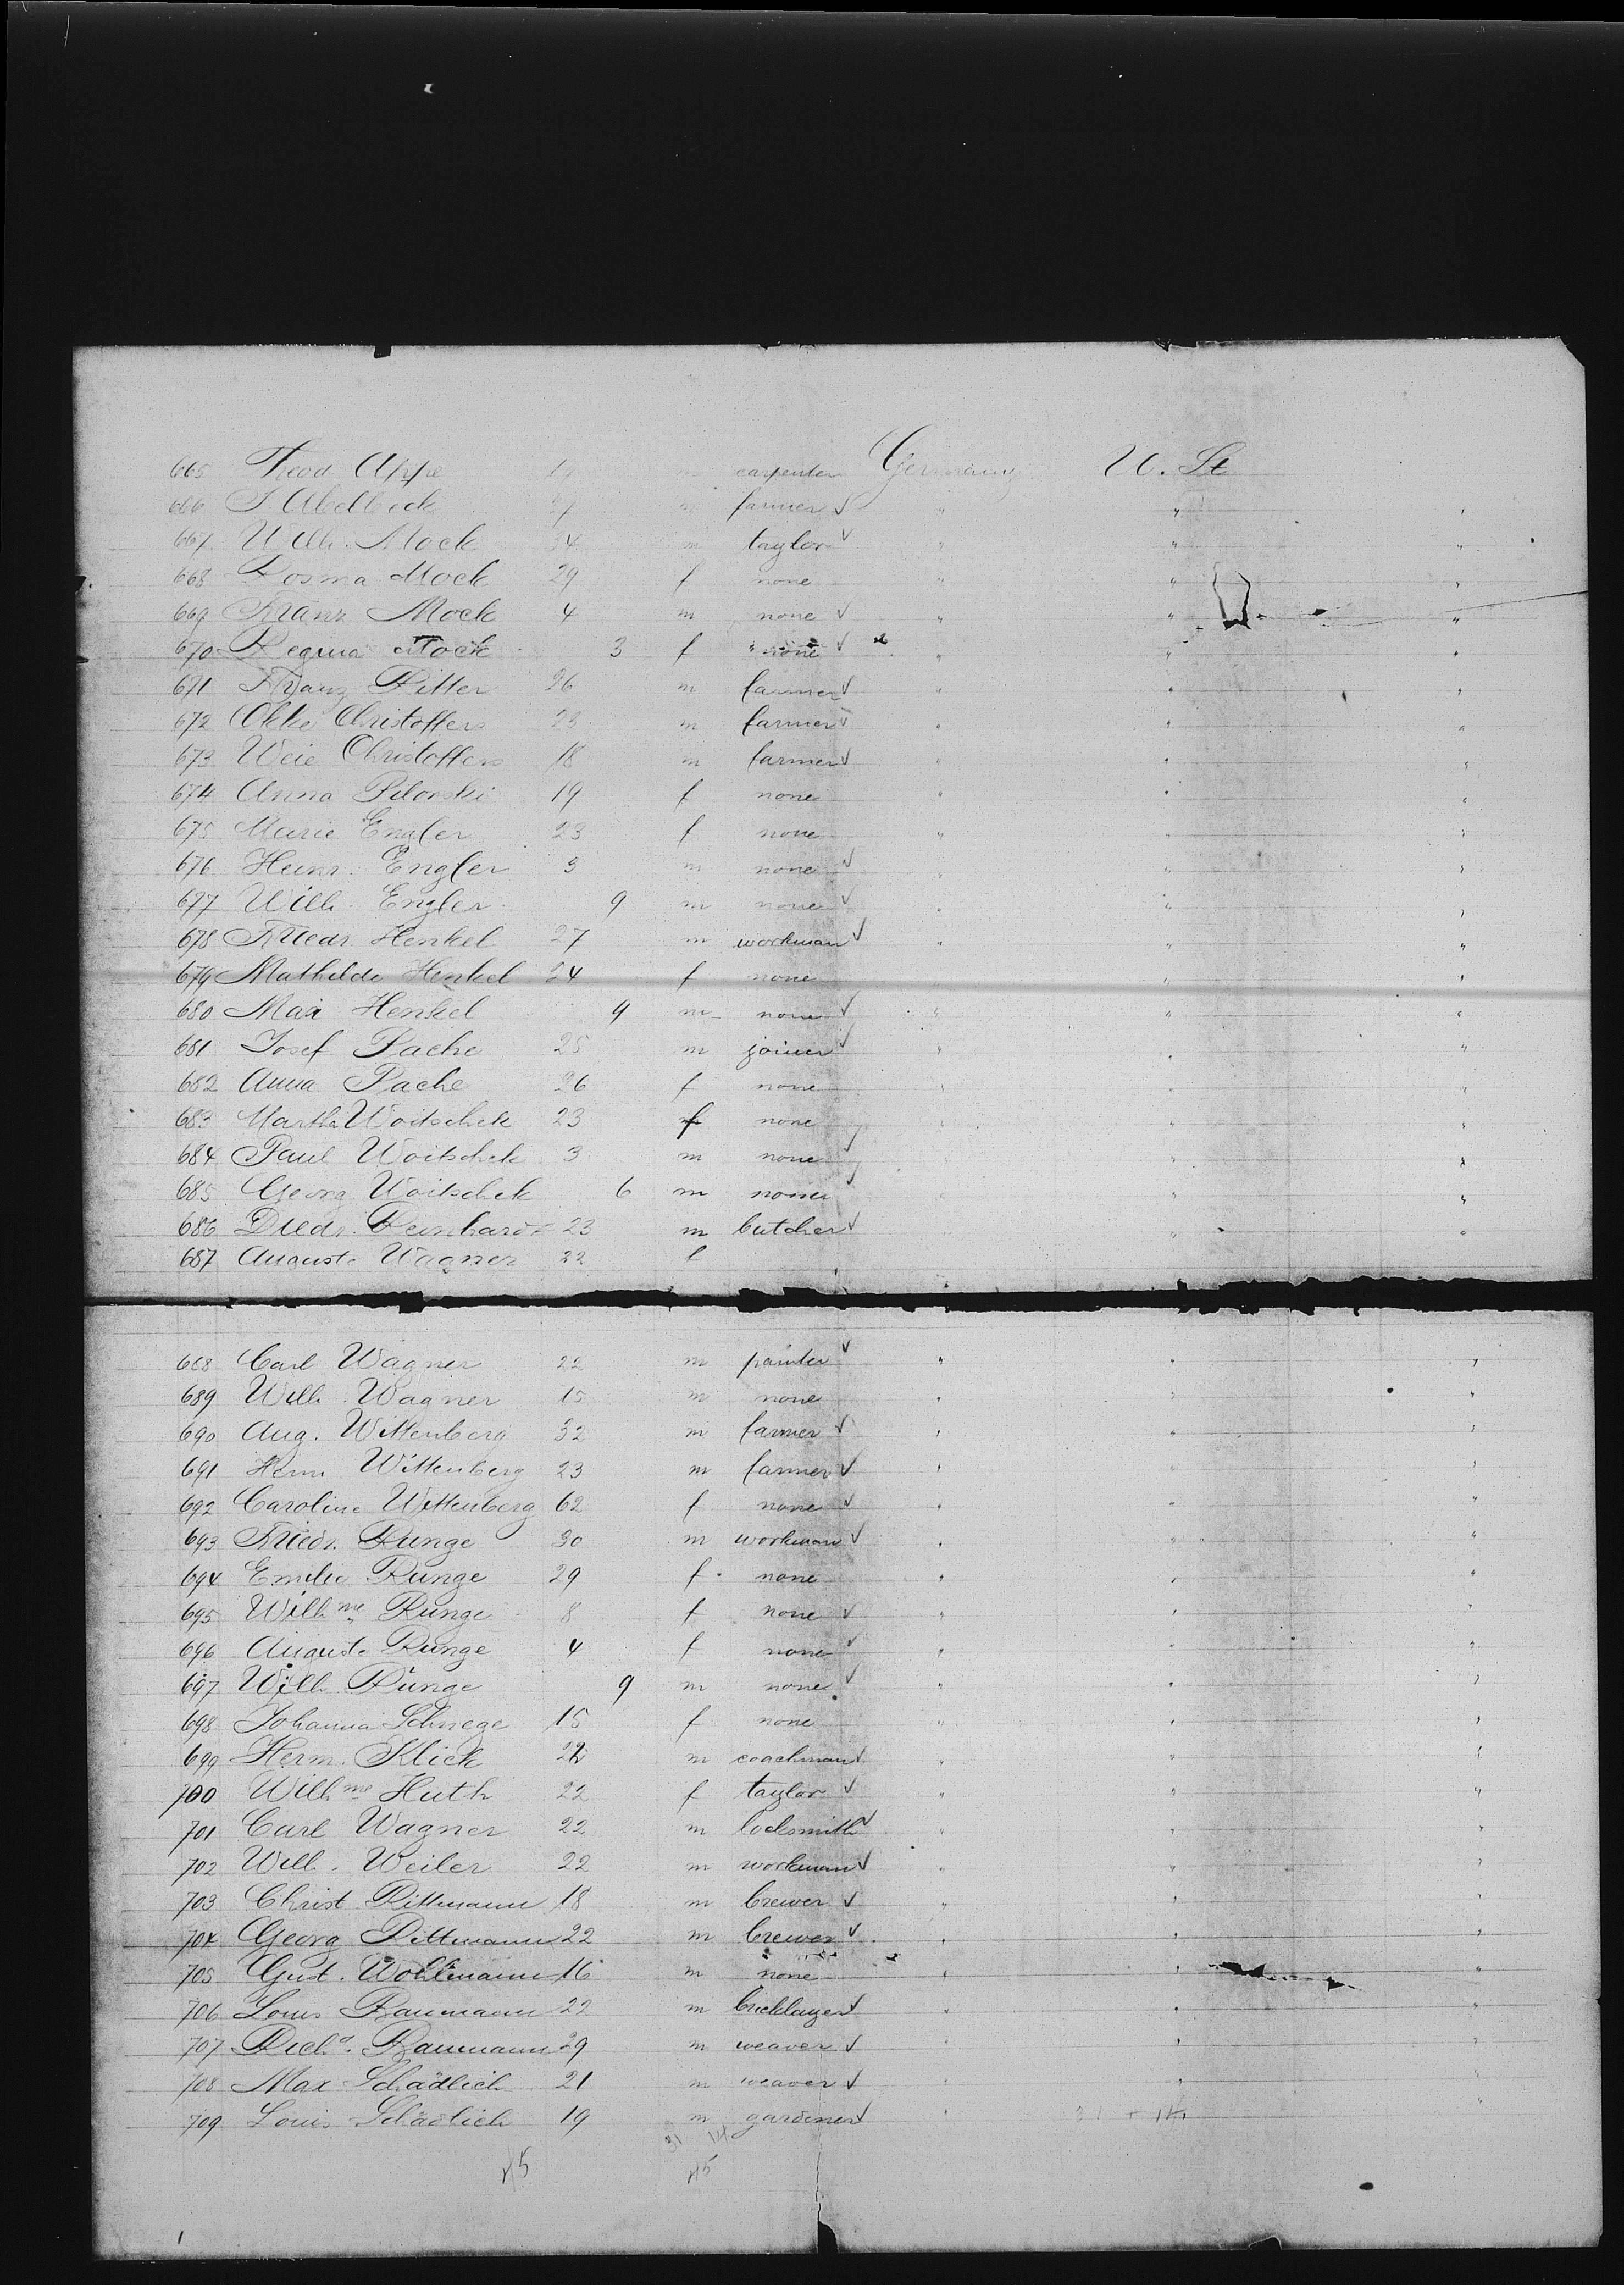 665 Theod Appe 19 m carpenter Germany U. St
666 J. Abelbeck m farmer " " "
667 Wilh. Mock 34 m taylor " " "
668 Rosma Mock 29 f none " " "
669 Franz Mock 4 m none " " "
670 Regina Mock 3 f none " " "
671 Franz Ritter 26 m farmer " " "
672 Okke Christoffers 28 m farmer " " "
673 Weie Christoffers 18 m farmer " " "
674 Anna Pilorski 19 f none " " "
675 Marie Engler 23 f none " " "
676 Heinr. Engler 3 m none " " "
677 Wilh. Engler 9 m none " " "
678 Friedr. Henkel 27 m workman " " "
679 Mathilde Henkel 24 f none " "
680 Max Henkel 9 m none " " "
681 Josef Pache 25 m joiner " " "
682 Anna Pache 26 f none " " "
683 Martha Woitschek 23 f none " " "
684 Paul Woitschek 3 m none " " "
685 Georg Woitschek 6 m none " " "
686 Diedr. Reinhardt 23 m butcher " "
687 Auguste Wagner 22 f
688 Carl Wagner 22 m painter " " "
689 Wilh. Wagner 15 m none " " "
690 Aug. Wittenberg 32 m farmer " " "
691 Herm Wittenberg 23 m farmer " " "
692 Caroline Wittenberg 62 f none " " "
693 Friedr. Runge 30 m workman " " "
694 Emilie Runge 29 f none " " "
695 Wilhme Runge 8 f none " " "
696 Auguste Runge 4 f none " " "
697 Wilh. Runge 9 m none " " "
698 Johanna Schnege 15 f none " " "
699 Herm. Klick 22 m coachman " " "
700 Wilhme Huth 22 f taylor " " "
701 Carl Wagner 22 m locksmith " " "
702 Wilh. Weiler 22 m workman " " "
703 Christ. Rittmann 18 m brewer " " "
704 Georg Rittmann 22 m brewer " " "
705 Gust. Wohlmann 16 m none " " "
706 Louis Baumann 22 m bricklayer " " "
707 Richd. Baumann 29 m weaver " " "
708 Max Schädlich 21 m weaver " "
709 Louis Schädlich 19 m gardener " 31 + 14 "
31 14
45 45
1